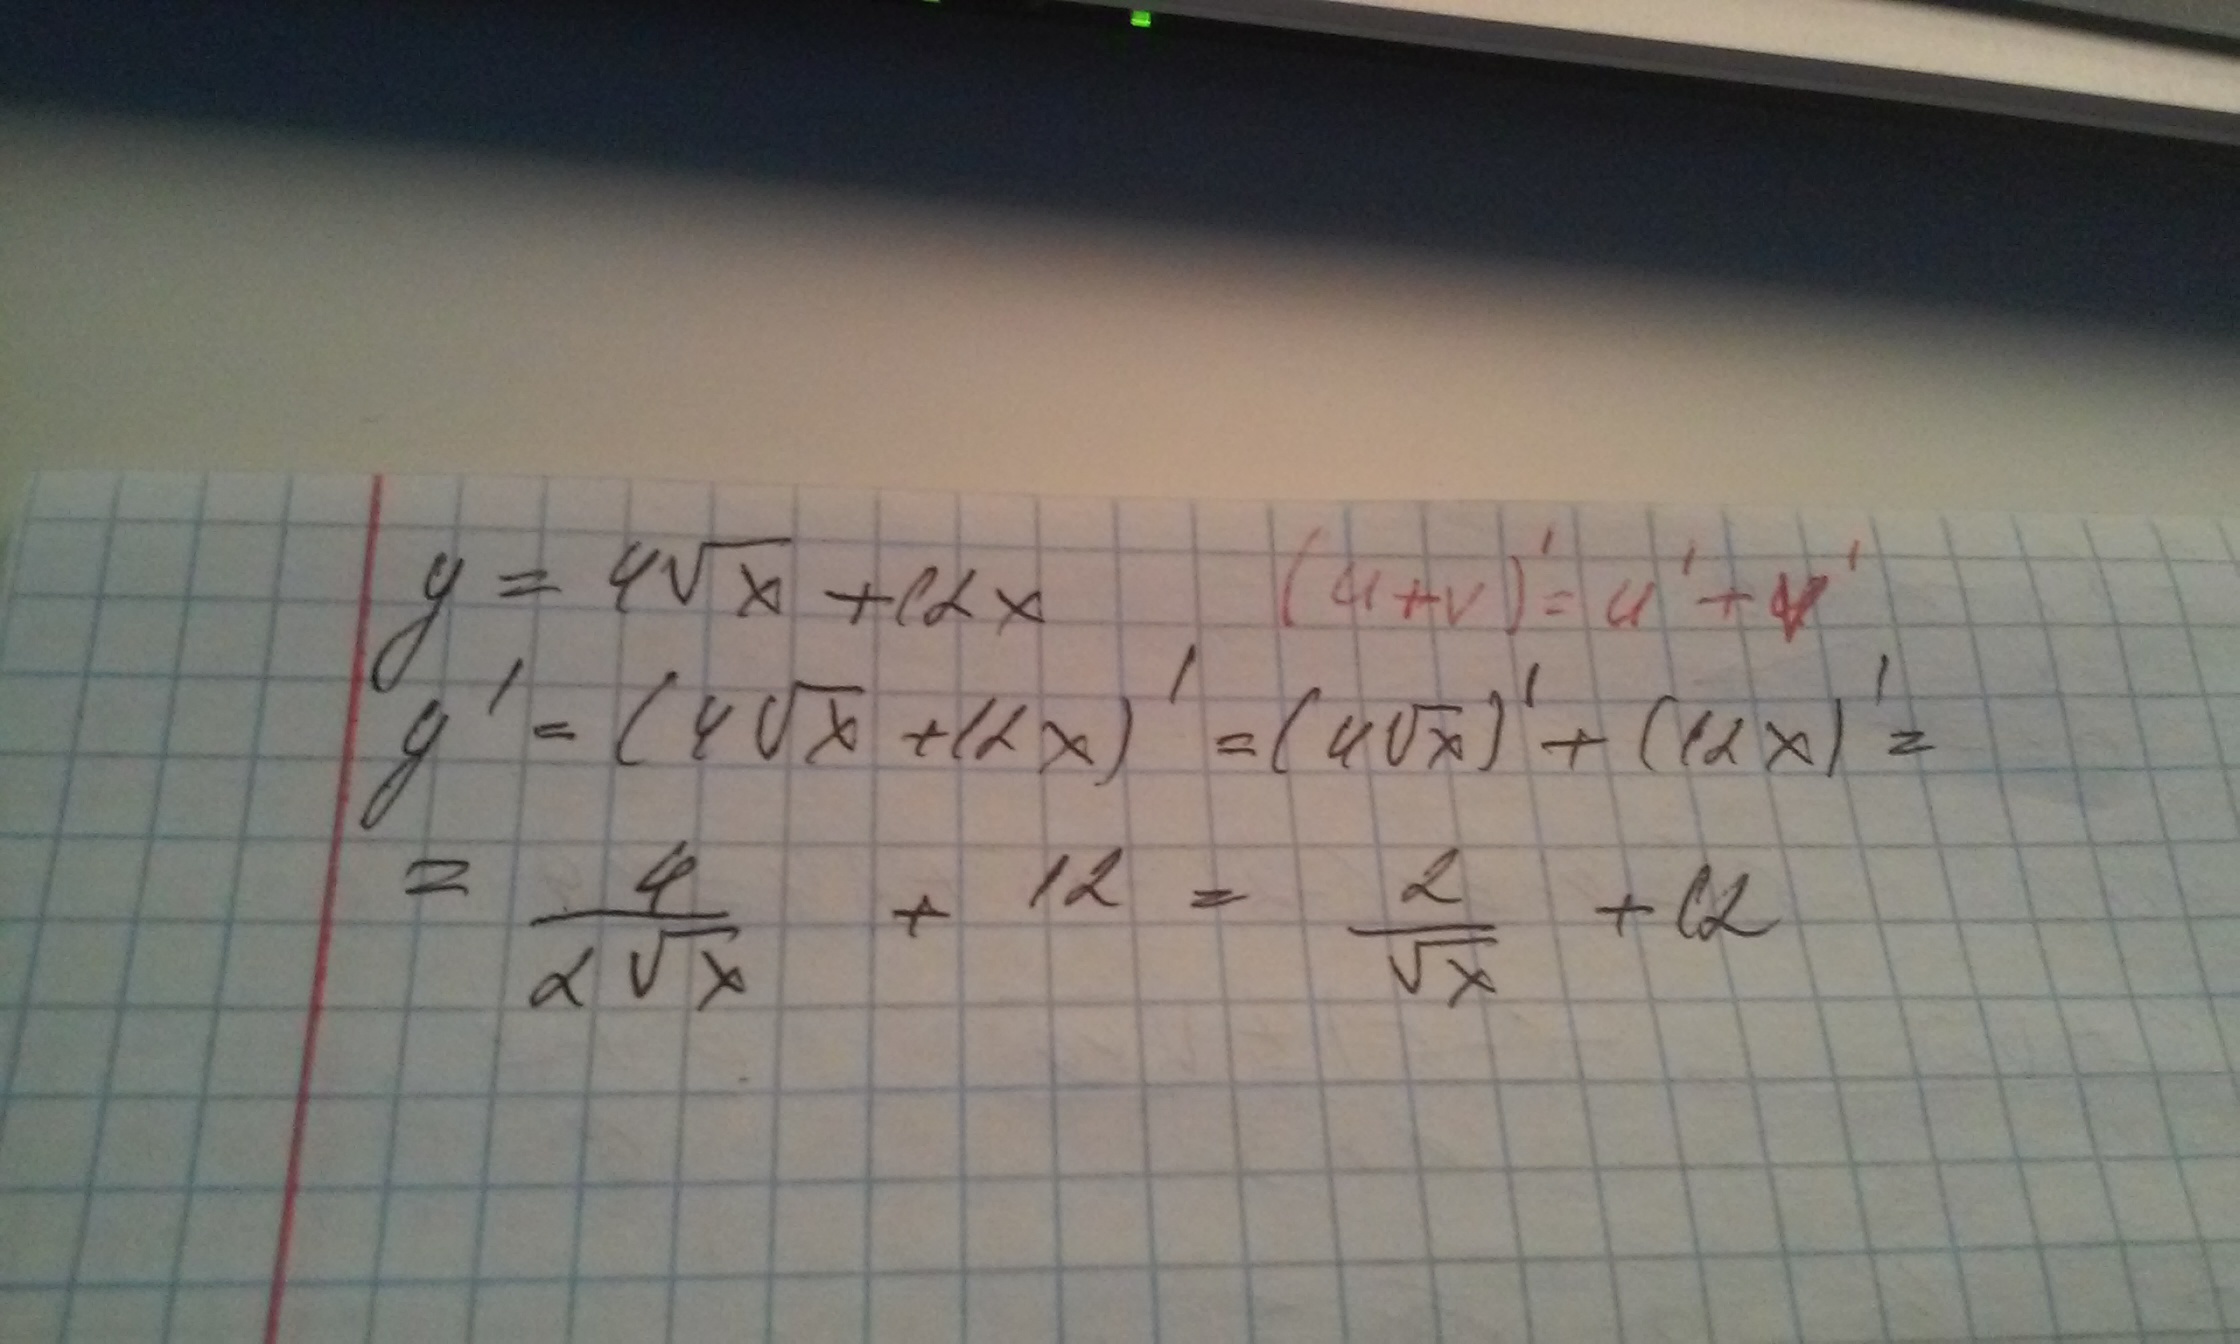 y = 4√x + 12x (u+v)' = u' + v'
y' = (4√x + 12x)' = (4√x)' + (12x)' =
= 4/(2√x) + 12 = 2/√x + 12